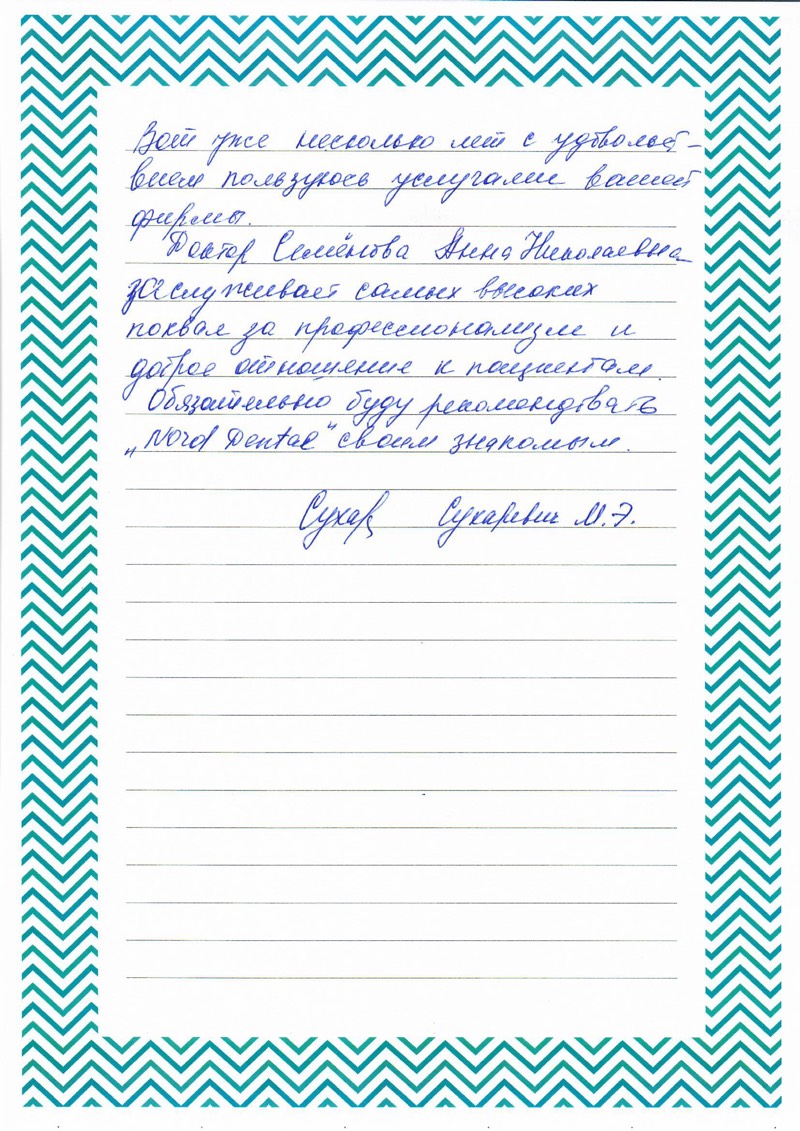 Вот уже несколько лет с удовольст-
вием пользуюсь услугами вашей
фирмы.
Доктор Семёнова Анна Николаевна
заслуживает самых высоких
похвал за профессионализм и
доброе отношение к пациентам.
Обязательно буду рекомендовать
„Nord Dental" своим знакомым.
Сухар Сухаревич М.Э.